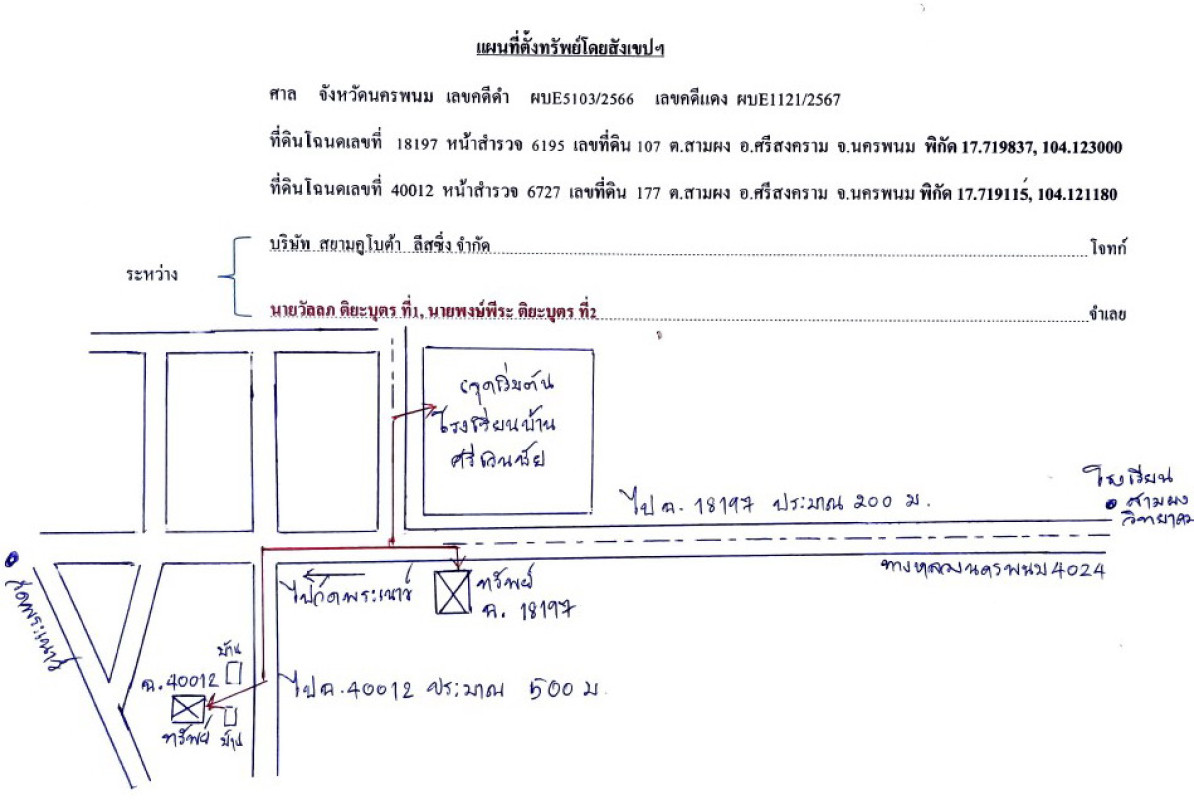 แผนที่ตั้งทรัพย์โดยสังเขปฯ
ศาล จังหวัดนครพนม เลขคดีดำ ผบE5103/2566 เลขคดีแดง ผบE1121/2567
ที่ดินโฉนดเลขที่ 18197 หน้าสำรวจ 6195 เลขที่ดิน 107 ต.สามผง อ.ศรีสงคราม จ.นครพนม พิกัด 17.719837, 104.123000
ที่ดินโฉนดเลขที่ 40012 หน้าสำรวจ 6727 เลขที่ดิน 177 ต.สามผง อ.ศรีสงคราม จ.นครพนม พิกัด 17.719115, 104.121180
บริษัท สยามคูโบต้า ลีสซิ่ง จำกัด โจทก์
ระหว่าง
นายวัลลภ ติยะบุตร ที่1, นายพงษ์พีระ ติยะบุตร ที่2 จำเลย
จุดเริ่มต้น
โรงเรียนบ้าน
ศรีเวินชัย
ไป ฉ. 18197 ประมาณ 200 ม.
โรงเรียน
สามผง
วิทยาคม
ทางหลวงนครพนม 4024
ไปวัดพระเนาว์
ทรัพย์
ฉ. 18197
วัดพระเนาว์
บ้าน
ฉ. 40012
ไป ฉ.40012 ประมาณ 500 ม.
ทรัพย์
บ้าน